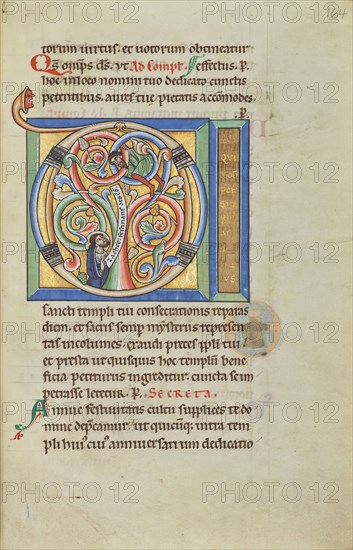 torum virtus. et votorum obtineatur
Qs omps ds. vt Ad Complt. effectus. P.
hoc in loco nomini tuo dedicato cunctis
petentibus. aures tue pietatis accommodes.
.P.
D
sancti templi tui consecrationis reparas
diem. et sacris semp mysteriis represen
tas incolumes. exaudi preces ppli tui
et presta ut quisquis hoc templum bene
ficia petiturus ingreditur. cuncta se im
petrasse letetur. P. SECRETA.
Annue
supplices te do
mine deprecamur. ut quicumque intra tem
pli huius cuius anniversarium dedicatio
PHOTO 12